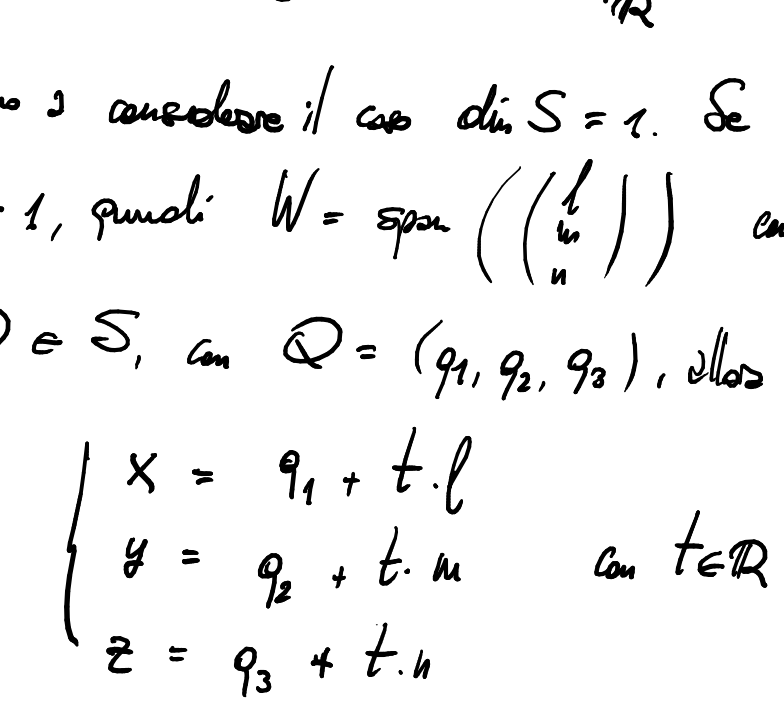 ℝ
considerare il caso dim S = 1. Se
1, quindi W = span ( ( l m n ) )
∈ S, con Q = (q1, q2, q3), allora
x = q1 + t·l
y = q2 + t·m con t∈ℝ
z = q3 + t·n